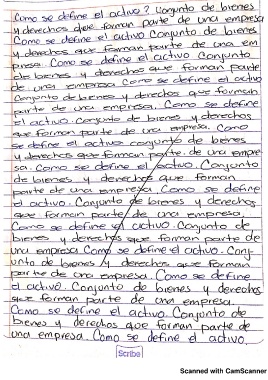 Como se define el activo? Conjunto de bienes
y derechos que forman parte de una empresa
Como se define el activo Conjunto de bienes
y derechos que forman parte de una em
presa. Como se define el activo Conjunto
de bienes y derechos que forman parte
de una empresa Como se define el activo
Conjunto de bienes y derechos que forman
parte de una empresa. Como se define el
activo. Conjunto de bienes y derechos
que forman parte de una empresa. Como
se define el activo conjunto de bienes
y derechos que forman parte. de una empre
sa. Como se define el activo. Conjunto
de bienes y derechos que forman
parte de una empresa. Como se define
el activo. Conjunto de bienes y derechos
que forman parte de una empresa.
Como se define el activo. Conjunto de
bienes y derechos que forman parte de
una empresa Como se define el activo. Conj
unto de bienes y derechos que forman
parte de una empresa. Como se define
el activo. Conjunto de bienes y derechos
que forman parte de una empresa.
Como se define el activo. Conjunto de
bienes y derechos que forman parte de
una empresa. Como se define el activo.
Scribe
Scanned with CamScanner